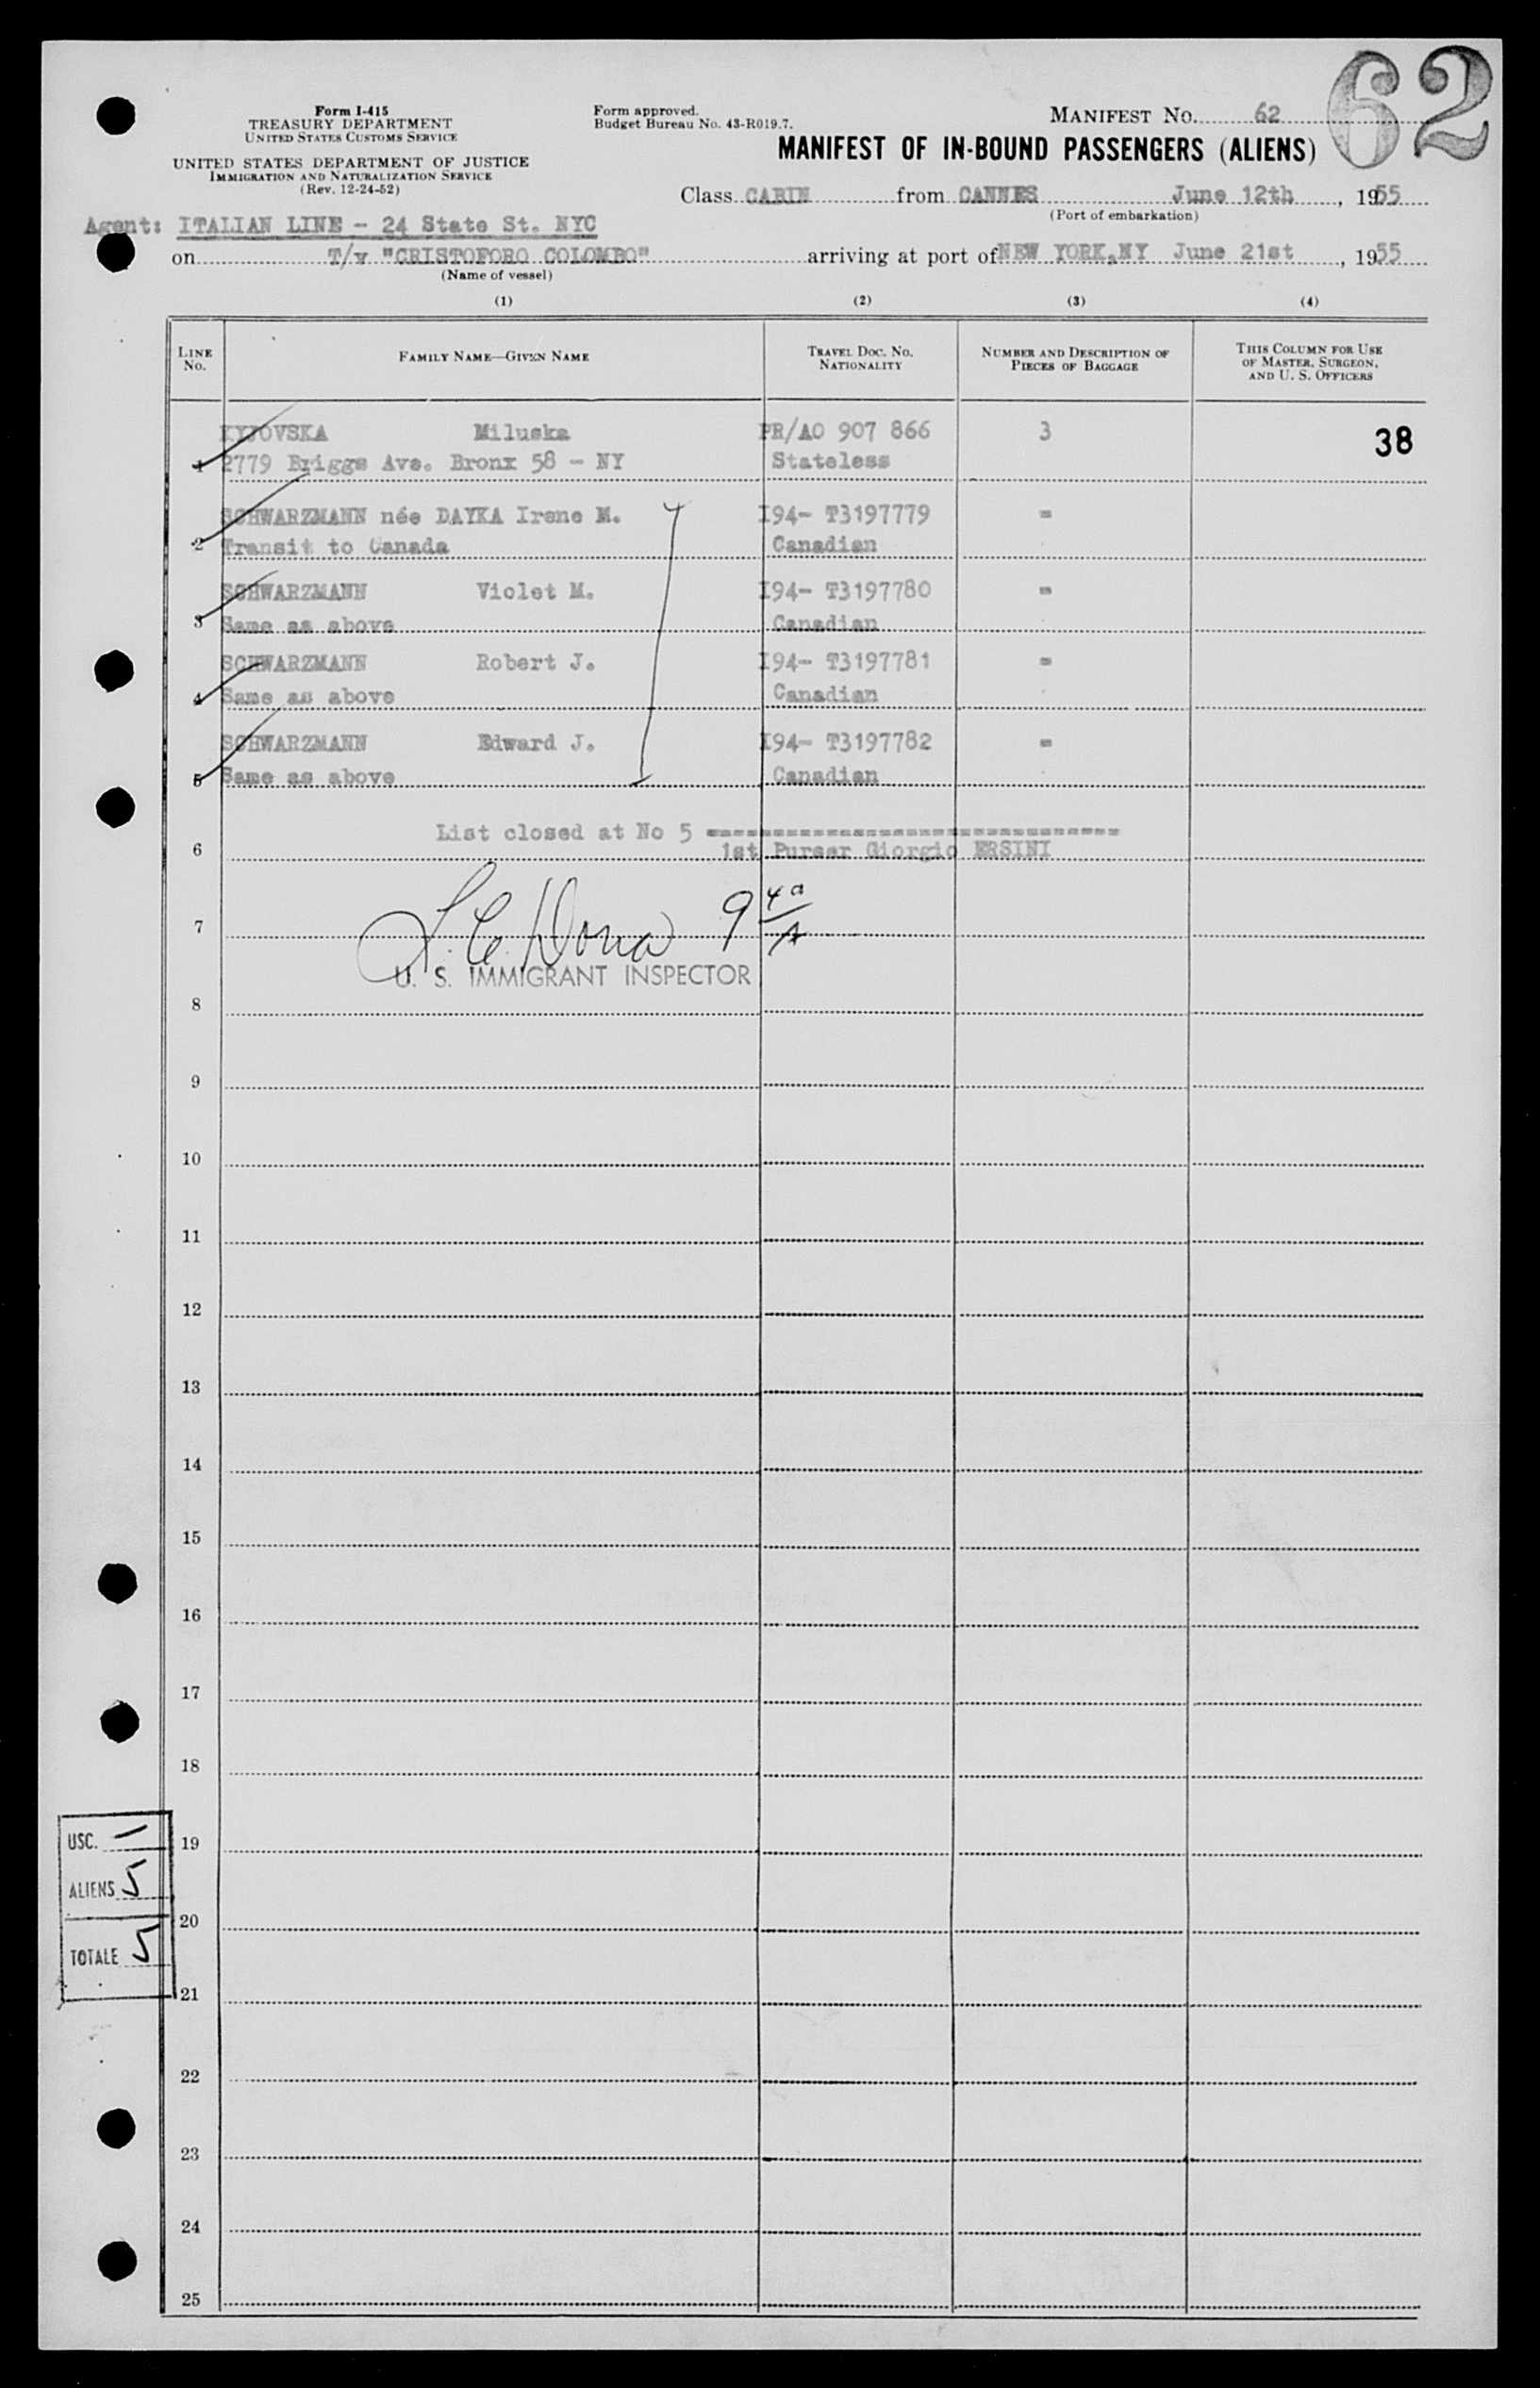 62
Form I-415
TREASURY DEPARTMENT
UNITED STATES CUSTOMS SERVICE
UNITED STATES DEPARTMENT OF JUSTICE
IMMIGRATION AND NATURALIZATION SERVICE
(Rev. 12-24-52)
Form approved.
Budget Bureau No. 43-R019.7.
MANIFEST NO. 62
MANIFEST OF IN-BOUND PASSENGERS (ALIENS)
Class CABIN from CANNES June 12th, 1955
(Port of embarkation)
Agent: ITALIAN LINE - 24 State St. NYC
on T/v "CRISTOFORO COLOMBO" arriving at port of NEW YORK,NY June 21st, 1955
(Name of vessel)
(1) (2) (3) (4)
LINE No. FAMILY NAME—GIVEN NAME TRAVEL DOC. NO. NATIONALITY NUMBER AND DESCRIPTION OF PIECES OF BAGGAGE THIS COLUMN FOR USE OF MASTER, SURGEON, AND U. S. OFFICERS
KYJOVSKA Miluska PR/AO 907 866 3 38
1 2779 Briggs Ave. Bronx 58 - NY Stateless
SCHWARZMANN née DAYKA Irene M. I94- T3197779 =
2 Transit to Canada Canadian
SCHWARZMANN Violet M. I94- T3197780 =
3 Same as above Canadian
SCHWARZMANN Robert J. I94- T3197781 =
4 Same as above Canadian
SCHWARZMANN Edward J. I94- T3197782 =
5 Same as above Canadian
List closed at No 5 ==============================
6 1st Purser Giorgio ERSINI
7 9 40/A
U. S. IMMIGRANT INSPECTOR
8
9
10
11
12
13
14
15
16
17
18
USC. —
19
ALIENS 5
20
TOTALE 5
21
22
23
24
25